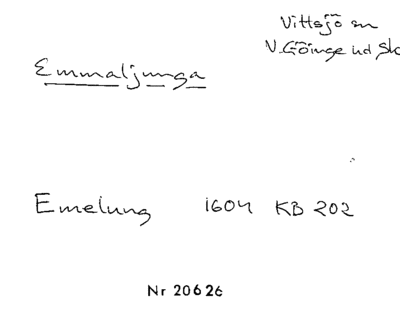 Vittsjö sn
V. Göinge hd Sk
Emmaljunga
Emelung 1604 KB 202
Nr 20626